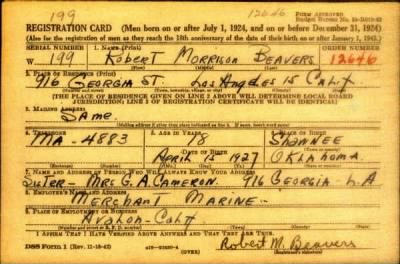 199
12646
FORM APPROVED
REGISTRATION CARD (Men born on or after July 1, 1924, and on or before December 31, 1924)
(Also for the registration of men as they reach the 18th anniversary of the date of their birth on or after January 1, 1925.)
SERIAL NUMBER
1. NAME (Print)
ORDER NUMBER
W 199
ROBERT MORRISON BEAVERS
12646
(First) (Middle) (Last)
2. PLACE OF RESIDENCE (Print)
916 GEORGIA ST. LOS ANGELES 15 CALIF
[THE PLACE OF RESIDENCE GIVEN ON LINE 2 ABOVE WILL DETERMINE LOCAL BOARD
JURISDICTION; LINE 2 OF REGISTRATION CERTIFICATE WILL BE IDENTICAL]
3. MAILING ADDRESS
SAME.
4. TELEPHONE
5. AGE IN YEARS
6. PLACE OF BIRTH
MA - 4883
18
SHAWNEE
DATE OF BIRTH
APRIL 15 1927
OKLAHOMA
(Exchange) (Number)
(Mo.) (Day) (Yr.)
(State or country)
7. NAME AND ADDRESS OF PERSON WHO WILL ALWAYS KNOW YOUR ADDRESS
SISTER - MRS G.A. CAMERON. 916 GEORGIA - L.A
8. EMPLOYER'S NAME AND ADDRESS
MERCHANT MARINE -
9. PLACE OF EMPLOYMENT OR BUSINESS
AVALON - CALIF
I AFFIRM THAT I HAVE VERIFIED ABOVE ANSWERS AND THAT THEY ARE TRUE.
DSS Form 1 (Rev. 11-16-42)
(OVER)
Robert M. Beavers